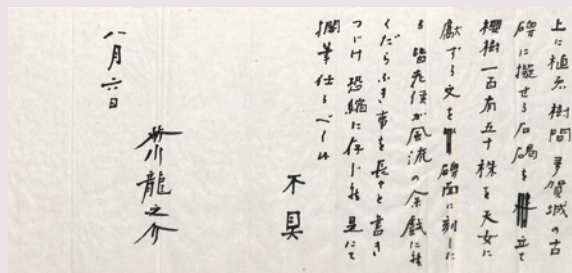 上に植ゑ樹間多賀城の古
碑に擬せる石碣を立て
櫻樹一百有五十株を天女に
獻ずる文を碑面に刻した
る 皆老侯が風流の余戯に御
くだらぬ事を長々と書き
つづけ 恐縮に存じ候 是にて
擱筆仕るべく候
不具
八月六日
芥川龍之介